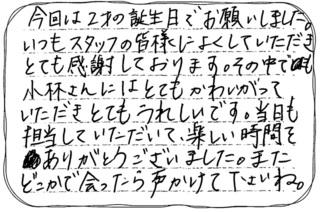 今回は2才の誕生日でお願いしました。
いつもスタッフの皆様によくしていただき
とても感謝しております。その中でも
小林さんにはとてもかわいがって
いただきとてもうれしいです。当日も
担当していただいて、楽しい時間を
ありがとうございました。また
どこかで会ったら声かけて下さいね。